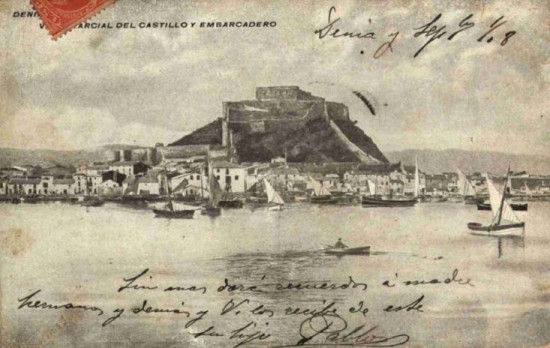 DENI
V PARCIAL DEL CASTILLO Y EMBARCADERO
Denia y Sepbre
Sin mas dará recuerdos á madre
hermanos y demás y V. los recibe de este
su hijo Pablo